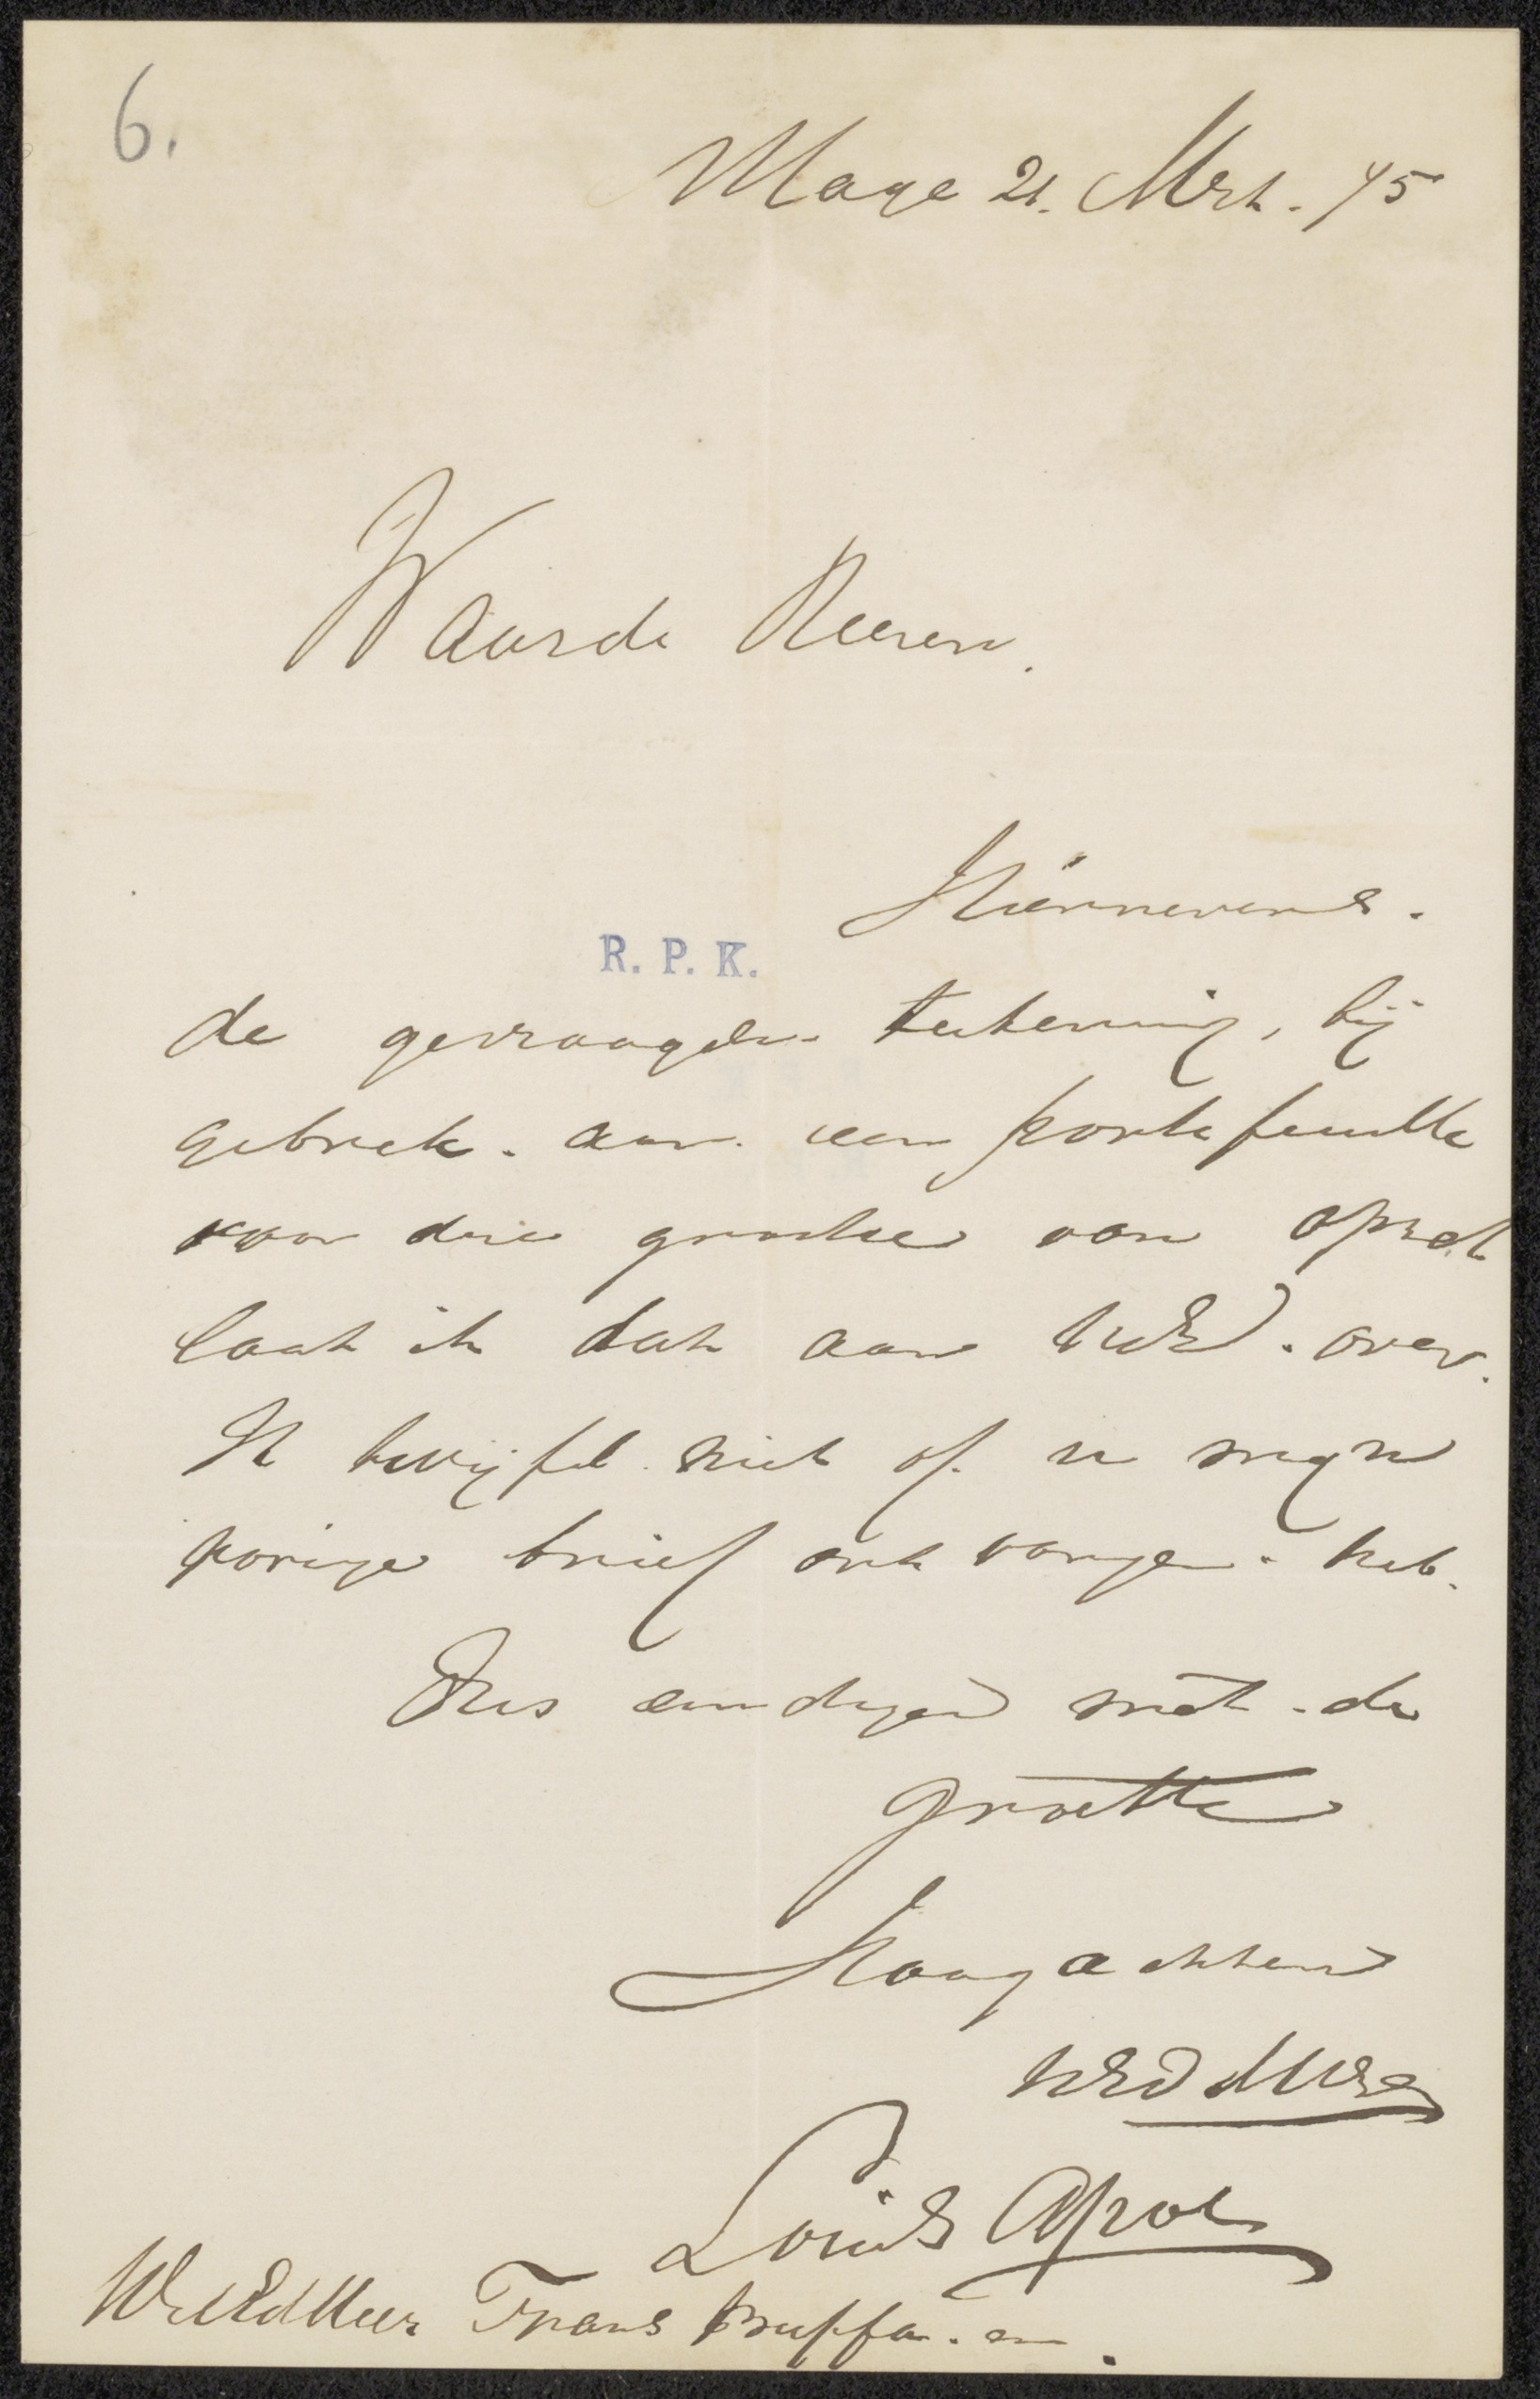 6.
Hage 21. Mrt. 75
Waarde Heeren.
Hiernevens.
R. P. K.
de gevraagde teekening, bij
gebrek. aan een portefeuille
voor die grootte van opzet
laat ik dat aan UEd. over.
Ik twijfel niet of u mijn
vorige brief ontvangen. heb.
Dus eindigend met de
groette
Hoogachtend
UEd
Louis Apol
WelEdHeer Frans Buffa. en